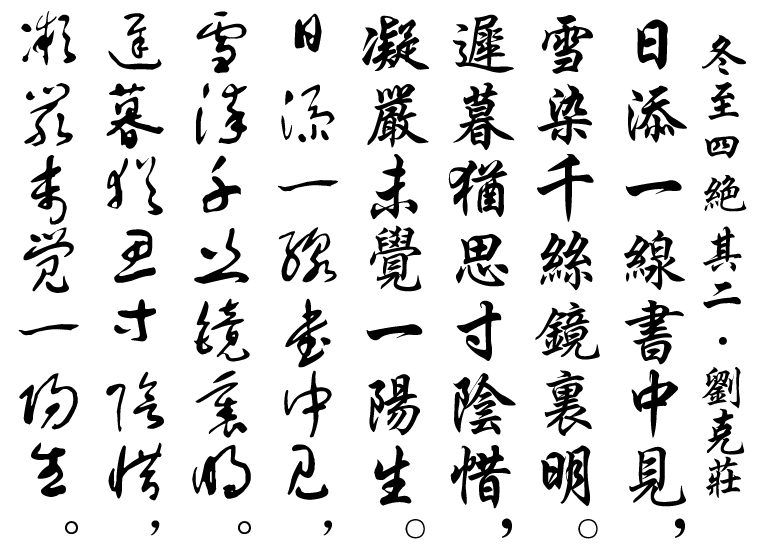 冬至四絕 其二・劉克莊
日添一線書中見，
雪染千絲鏡裏明。
遲暮猶思寸陰惜，
凝嚴未覺一陽生。
日添一線書中見，
雪染千絲鏡裏明。
遲暮猶思寸陰惜，
凝嚴未覺一陽生。